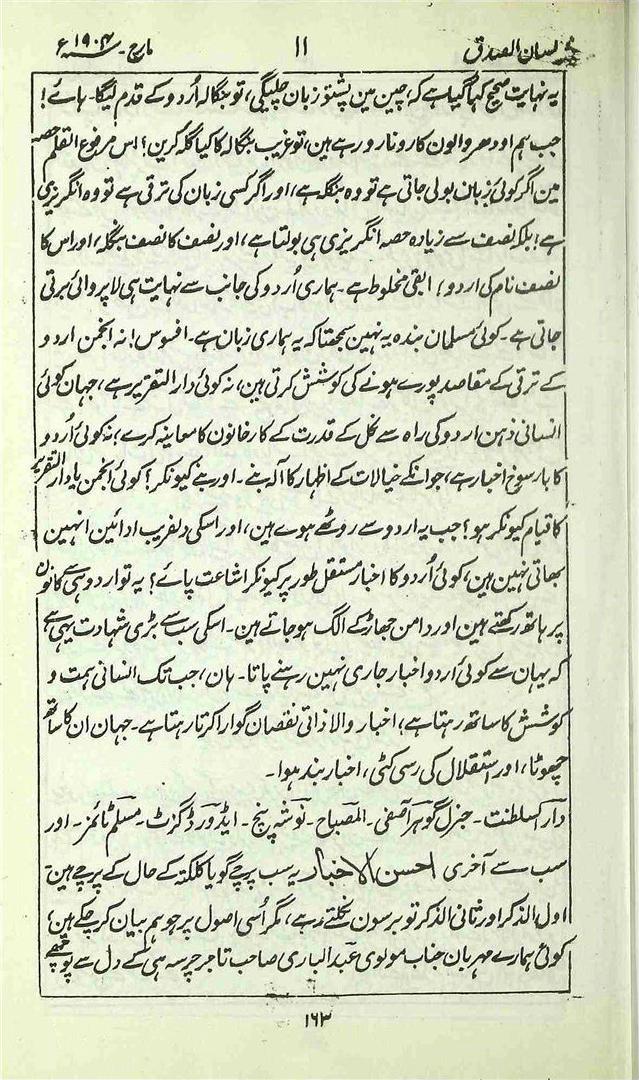 لسان الصدق ۱۱ مارچ ۱۹۰۴ء
یہ نہایت صحیح کہا گیا ہے کہ، چین مین پشتو زبان چلیگی، تو بنگالہ اُردو کے قدم لیگا۔ ہائے!
جب ہم اودھر والون کا رونا رو رہے ہین، تو غریب بنگالہ کا کیا گلہ کرین؟ اس مرفوع القلم حصہ
مین اگر کوئی زبان بولی جاتی ہے تو وہ بنگلہ ہے، اور اگر کسی زبان کی ترقی ہے تو وہ انگریزی
ہے! بلکہ نصف سے زیادہ حصہ انگریزی ہی بولتا ہے، اور نصف کا نصف بنگلہ، اور اس کا
نصف نام کی اردو! ابقی مخلوط ہے۔ ہماری اُردو کی جانب سے نہایت ہی لاپروائی برتی
جاتی ہے۔ کوئی مسلمان بندہ یہ نہین سمجھتا کہ یہ ہماری زبان ہے۔ افسوس! نہ انجمن اردو
کے ترقی کے مقاصد پورے ہونے کی کوشش کرتی ہین، نہ کوئی دار التقریر ہے، جہان کوئی
انسانی ذہن اردو کی راہ سے نکل کے قدرت کے کارخانون کا معاینہ کرے؛ نہ کوئی اُردو
کا بارسوخ اخبار ہے، جو انکے خیالات کے اظہار کا آلہ بنے۔ اور بنے کیونکر؟ کوئی انجمن یا دار التقریر
کا قیام کیونکر ہو؟ جب یہ اردو سے روٹھے ہوے ہین، اور اسکی دلفریب ادائین انہین
بھاتی نہین ہین، کوئی اُردو کا اخبار مستقل طور پر کیونکر اشاعت پائے؟ یہ تو اردو ہی سے کانون
پر ہاتھ رکھتے ہین اور دامن جھاڑ کے الگ ہو جاتے ہین۔ اسکی سب سے بڑی شہادت یہی ہے
کہ یہان سے کوئی اُردو اخبار جاری نہین رہنے پاتا۔ ہان، جب تک انسانی ہمت و
کوشش کا ساتھ رہتا ہے، اخبار والا ذاتی نقصان گوارا کرتا رہتا ہے۔ جہان ان کا ساتھ
چھوٹا، اور استقلال کی رسی کٹی، اخبار بند ہوا۔
دار السلطنت۔ جنرل گوہر آصفی۔ المصباح۔ نوشہ پنچ۔ ایڈورڈ گزٹ۔ مسلم ٹائمز۔ اور
سب سے آخری احسن الاخبار یہ سب پرچے گویا کلکتہ کے حال کے پرچے ہین۔
اول الذکر اور ثانی الذکر تو برسون نکلتے رہے، مگر اُسی اصول پر جو ہم بیان کر چکے ہین؛
کوئی ہمارے مہربان جناب مولوی عبد الباری صاحب تاجر چرسہ ہی کے دل سے پوچھے
۱۶۳